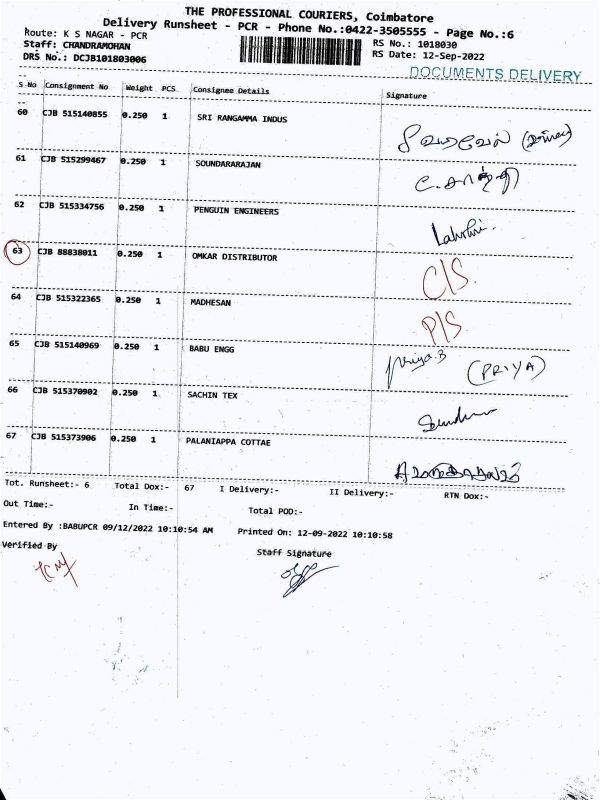 THE PROFESSIONAL COURIERS, Coimbatore
Delivery Runsheet - PCR - Phone No.:0422-3505555 - Page No.:6
Route: K S NAGAR - PCR
Staff: CHANDRAMOHAN
DRS No.: DCJB101803006
RS No.: 1018030
RS Date: 12-Sep-2022
DOCUMENTS DELIVERY
S No Consignment No Weight PCS Consignee Details Signature
60 CJB 515140855 0.250 1 SRI RANGAMMA INDUS
61 CJB 515299467 0.250 1 SOUNDARARAJAN
62 CJB 515334756 0.250 1 PENGUIN ENGINEERS Lakshmi.
63 CJB 88838011 0.250 1 OMKAR DISTRIBUTOR C/S.
64 CJB 515322365 0.250 1 MADHESAN P/S
65 CJB 515140969 0.250 1 BABU ENGG Priya.B (PRIYA)
66 CJB 515370902 0.250 1 SACHIN TEX
67 CJB 515373906 0.250 1 PALANIAPPA COTTAE
Tot. Runsheet:- 6 Total Dox:- 67 I Delivery:- II Delivery:- RTN Dox:-
Out Time:- In Time:- Total POD:-
Entered By :BABUPCR 09/12/2022 10:10:54 AM Printed On: 12-09-2022 10:10:58
Verified By Staff Signature